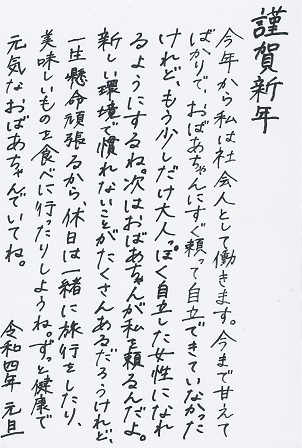 謹賀新年
今年から私は社会人として働きます。今まで甘えて
ばかりで、おばあちゃんにすぐ頼って自立できていなかった
けれど、もう少しだけ大人っぽく自立した女性になれ
るようにするね。次はおばあちゃんが私を頼るんだよ。
新しい環境で慣れないことがたくさんあるだろうけれど、
一生懸命頑張るから、休日は一緒に旅行をしたり、
美味しいものを食べに行ったりしようね。ずっと健康で
元気なおばあちゃんでいてね。
令和四年 元旦